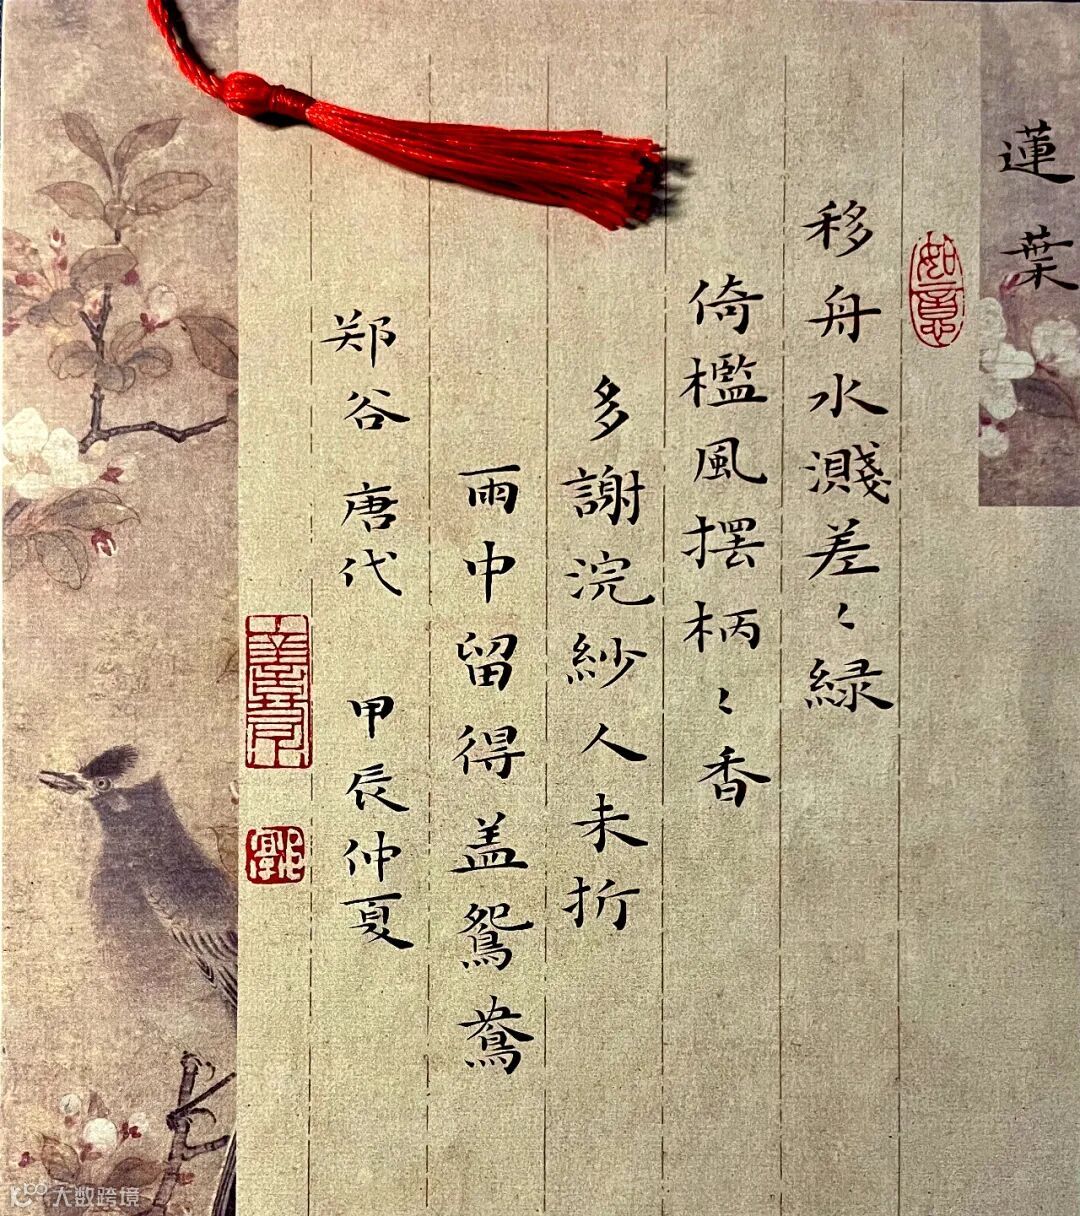 蓮葉
如意
移舟水濺差〻緑
倚檻風摆柄〻香
多謝浣紗人未折
雨中留得盖鴛鴦
郑谷 唐代 甲辰仲夏
大数跨境